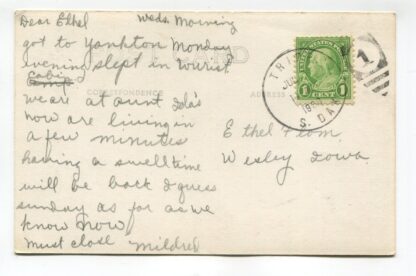 Dear Ethel Weds. Morning
got to Yankton Monday
evening slept in tourist
Cabin
we are at aunt Lola's
now are living in
a few minutes
having a swell time
will be back I guess
sunday as far as we
know now
must close Mildred
CORRESPONDENCE
ADDRESS
Ethel
Wesley Iowa.
UNITED STATES POSTAGE
1 CENT 1
TRI
S. DAK
1